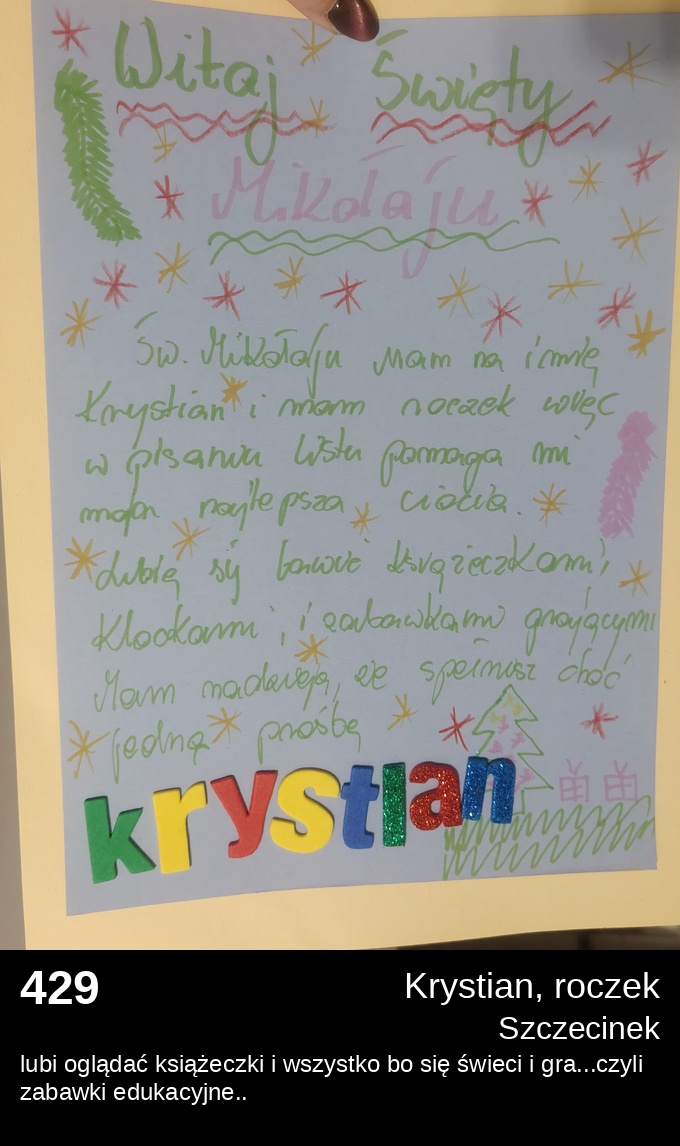 Witaj Święty
Mikołaju
Św. Mikołaju Mam na imię
Krystian i mam roczek więc
w pisaniu listu pomaga mi
moja najlepsza ciocia.
Lubię się bawić książeczkami,
Klockami, i zabawkami grającymi
Mam nadzieję, że spełnisz choć
jedną prośbę
krystian
429
Krystian, roczek
Szczecinek
lubi oglądać książeczki i wszystko bo się świeci i gra...czyli
zabawki edukacyjne..